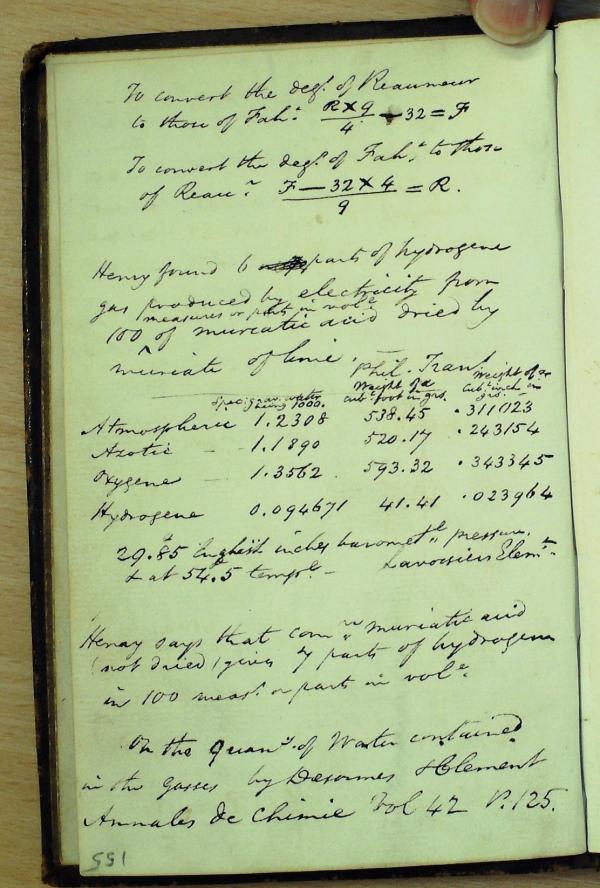 To convert the degs. of Reaumeur
to those of Fahr. R×9/4 + 32 = F
To convert the degs. of Fahr. to those
of Reaur. F — 32 × 4/9 = R.
Henry found 6 parts of hydrogene
gas produced by electricity from
measures or parts in vole.
100 of muriatic acid dried by
muriate of lime. Phil. Trans.
Spec. grav. water being 1000. Weight of a cubc. foot in grs. Weight of a cubc. inch in grs.
Atmospheric 1.2308 538.45 .311023
Azotic — 1.1890 520.17 .243154
Oxygene — 1.3562 593.32 .343345
Hydrogene 0.094671 41.41 .023964
29.85 English inches baromet. pressure.
& at 54.5 tempe. — Lavoisiers Elemts.
Henry says that comn. muriatic acid
(not dried) gives 7 parts of hydrogene
in 100 meass. or parts in vole.
On the quany. of Water contained
in the gasses by Desormes & Clement
Annales de Chimie Vol 42 P. 125.
155